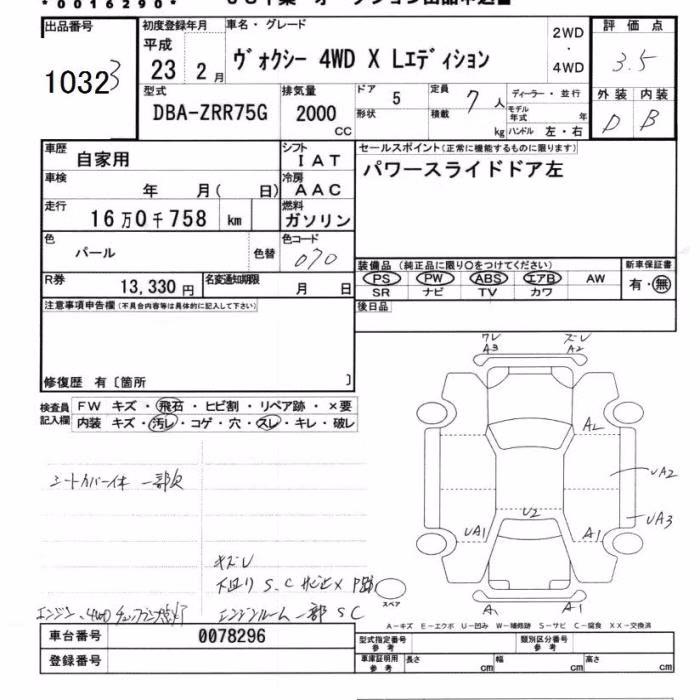 *0016290*
出品番号 初度登録年月 車名・グレード 2WD・4WD 評価点
10323 平成23年2月 ヴォクシー 4WD X Lエディション 3.5
型式 排気量 ドア 5 定員 7人 ディーラー・並行 外装 内装
DBA-ZRR75G 2000CC 形状 積載 kg モデル年式 年 ハンドル 左・右 D B
車歴 自家用 シフト IAT セールスポイント(正常に機能するものに限ります)
車検 年 月( 日) 冷房 AAC パワースライドドア左
走行 16万0千758 km 燃料 ガソリン
色 パール 色替 色コード 070
装備品 (純正品に限り○をつけてください) 新車保証書
PS PW ABS エアB AW 有・無
SR ナビ TV カワ
R券 13,330円 名変通知期限 月 日
注意事項申告欄(不具合内容等は具体的に記入して下さい) 後日品
修復歴 有〔箇所 〕
検査員記入欄 FW キズ・飛石・ヒビ割・リペア跡・×要
内装 キズ・汚レ・コゲ・穴・スレ・キレ・破レ
ワレ A3 ズレ A2
A2
UA2
UA3
U2
UA1 A1
A1 A1
シートカバー一体 一部欠
キズU
下廻り S.C サビ
エンジン、4WD チェックランプ点灯
エンジンルーム一部 S C
スペア
A－キズ E－エクボ U－凹み W－補修跡 S－サビ C－腐食 XX－交換済
車台番号 0078296 型式指定番号 参考 類別区分番号 参考
登録番号 車庫証明用 参考 長さ cm 幅 cm 高さ cm